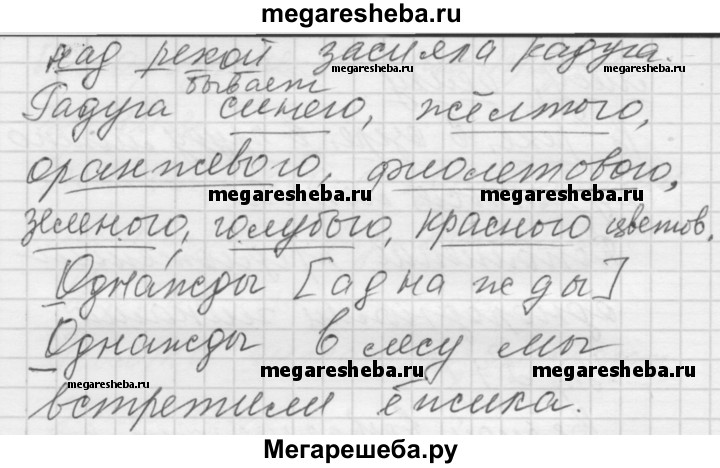 megaresheba.ru
над рекой засияла радуга.
megaresheba.ru megaresheba.ru
бывает
Радуга синего, жёлтого,
оранжевого, фиолетового,
megaresheba.ru megaresheba.ru
зеленого, голубого, красного цветов.
Однажды [аднажды]
Однажды в лесу мы
megaresheba.ru megaresheba.ru megaresheba.ru
встретили ёжика.
Мегарешеба.ру